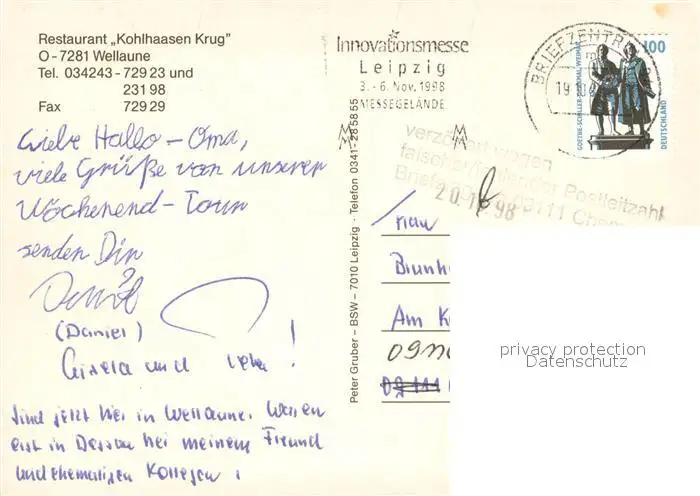 Restaurant „Kohlhaasen Krug"
O-7281 Wellaune
Tel. 034243-729 23 und
231 98
Fax 729 29
Liebe Hallo-Oma,
viele Grüße von unserer
Wochenend-Tour
senden Dir
(Daniel)
Gisela und !
Sind jetzt hier in Wellaune. Waren
erst in Dessau bei meinem Freund
und ehemaligen Kollegen.
Peter Gruber – BSW – 7010 Leipzig · Telefon 0341-28 58 55
Innovationsmesse
Leipzig
3.-6. Nov. 1998
MESSEGELÄNDE
BRIEFZENTRUM
GOETHE-SCHILLER-DENKMAL WEIMAR
100
DEUTSCHLAND
verzögert wegen
falscher/fehlender Postleitzahl
20.10.98
Frau
Am K
privacy protection
Datenschutz